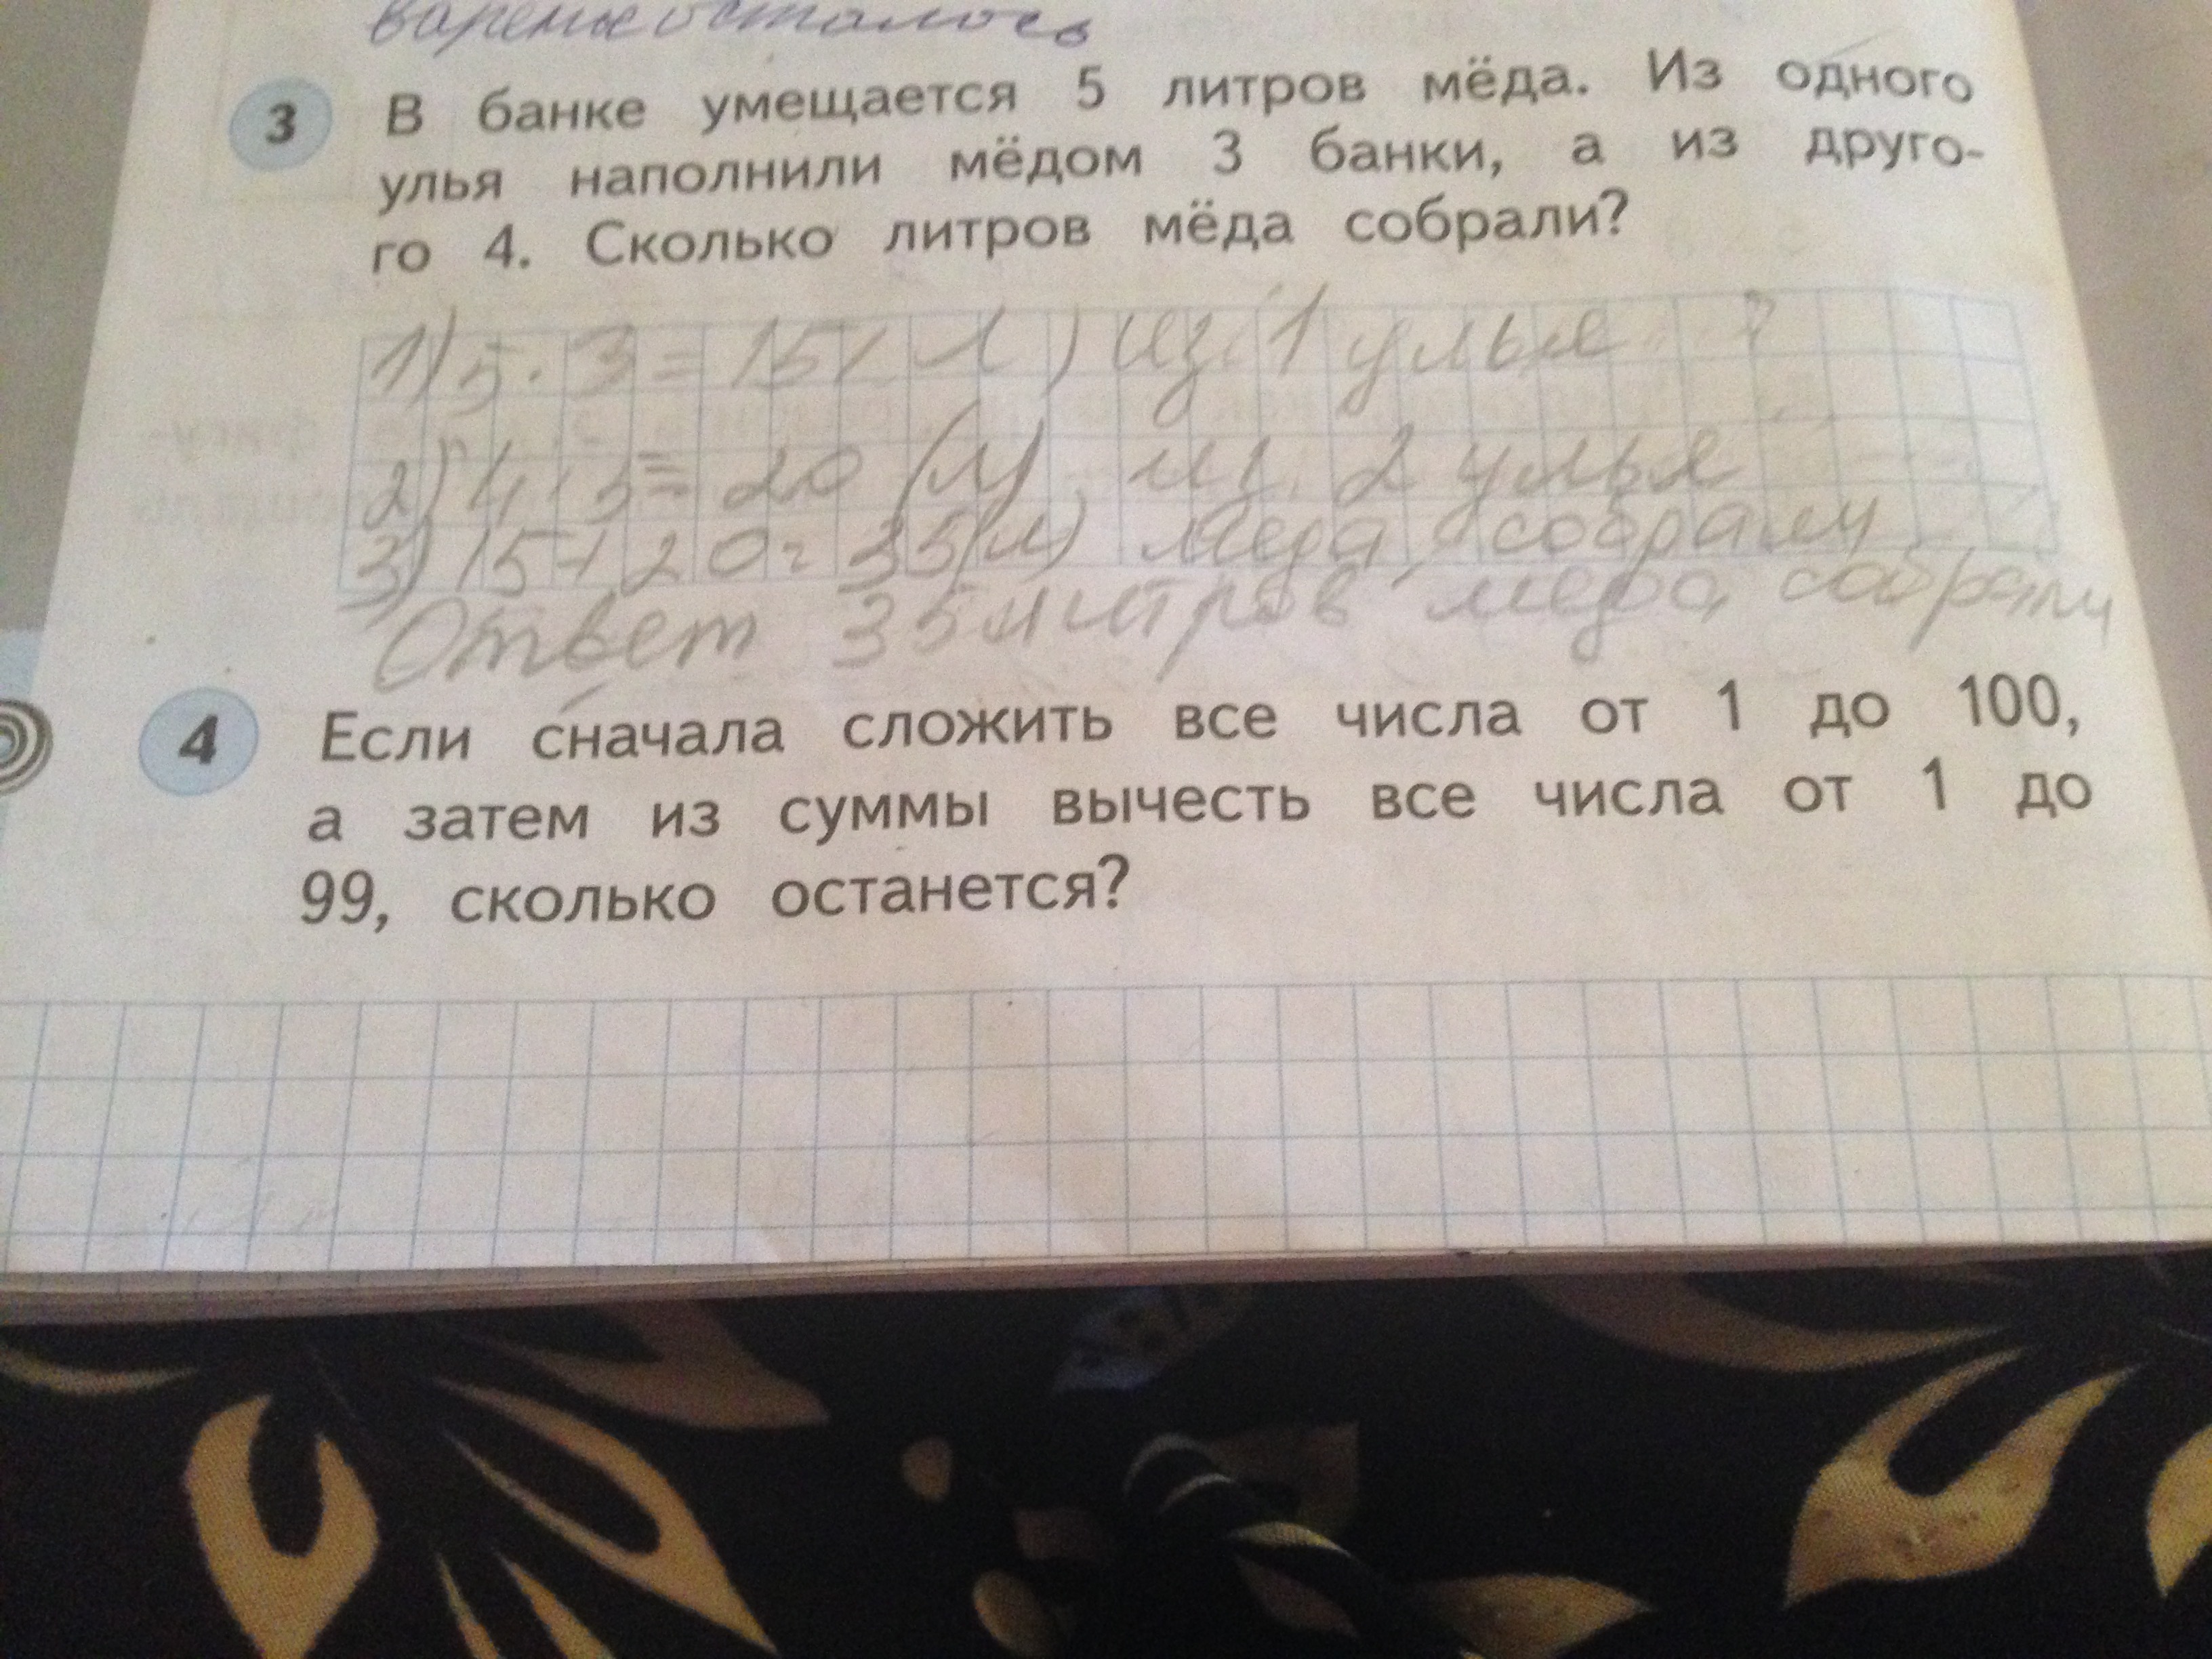 варенья осталось
3 В банке умещается 5 литров мёда. Из одного
улья наполнили мёдом 3 банки, а из друго-
го 4. Сколько литров мёда собрали?
1) 5·3=15( л) из 1 улья
2) 4·5=20 (л) из 2 улья
3) 15+20=35(л) меда собрали
Ответ 35 литров меда собрали
4 Если сначала сложить все числа от 1 до 100,
а затем из суммы вычесть все числа от 1 до
99, сколько останется?